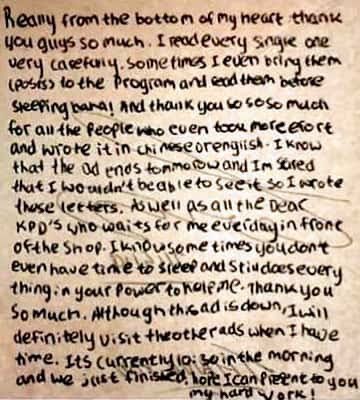 Really from the bottom of my heart thank
you guys so much. I read every single one
very carefully. Sometimes I even bring them
(posts) to the Program and read them before
sleeping haha! And thank you so so so much
for all the people who even took more efort
and wrote it in chinese or english. I know
that the ad ends tommorow and Im
that I wouldn't be able to see it so I wrote
these letters. As well as all the Dear
KPD's who waits for me everday in front
of the shop. I know some times you don't
even have time to sleep and Still does every
thing in your Power to help me. Thank you
So much. Although this ad is down, I will
definitely visit the other ads when I have
time. Its currently 10:50 in the morning
and we just finished, hope I can Present to you
my hard work!